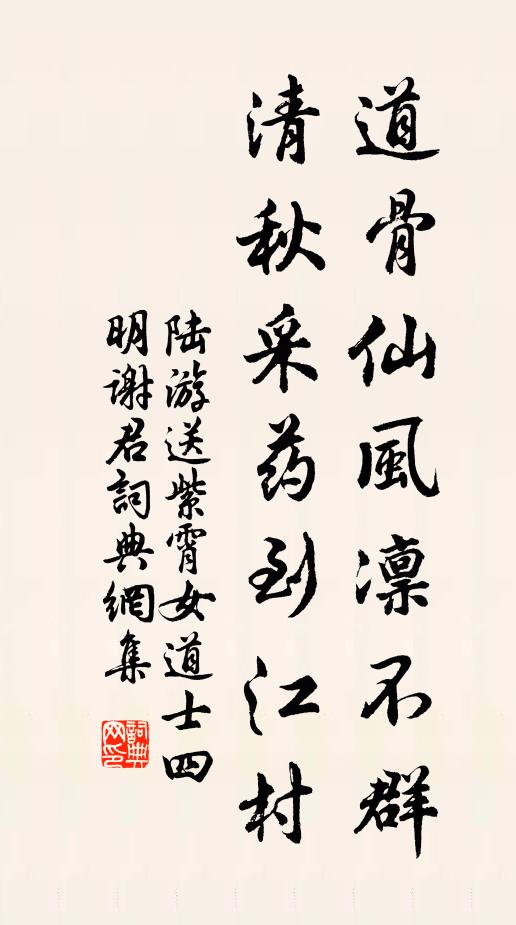 道骨仙風凛不群
清秋采药到江村
陆游送紫霄女道士四
明謝君詞典網集
詞典
网印